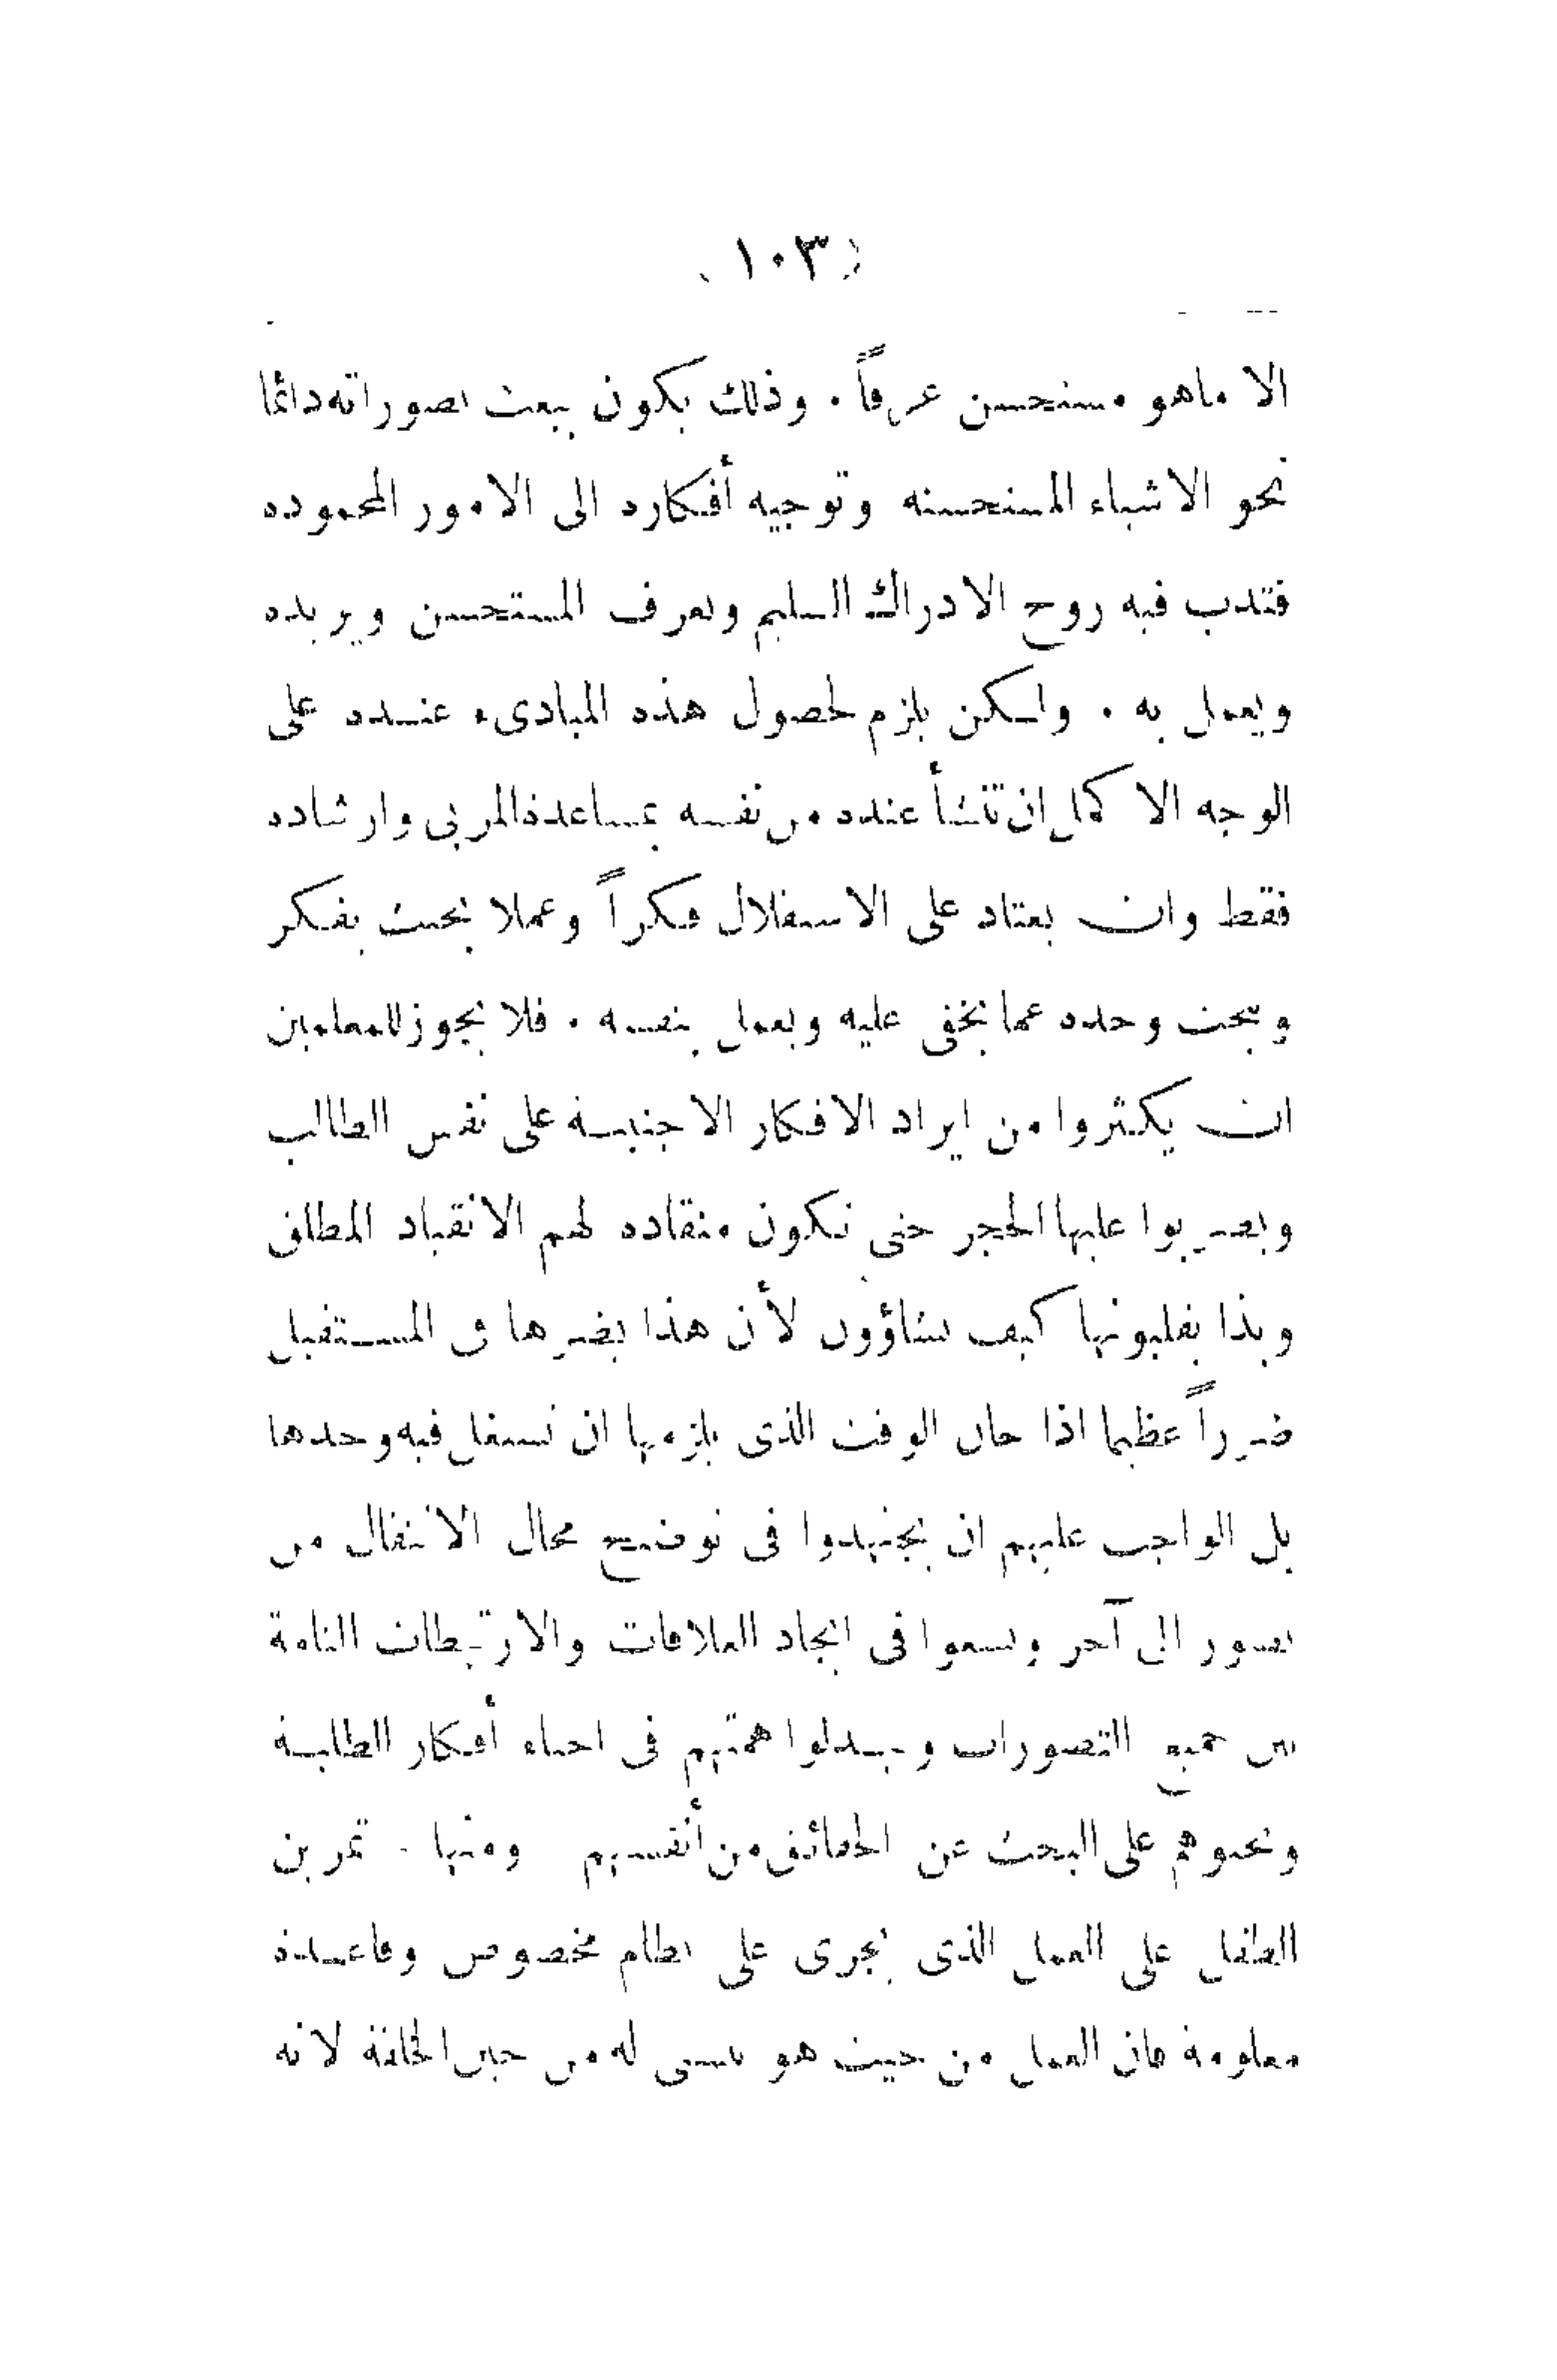 (١٠٣)
الا ماهو مستحسن عرفاً . وذلك يكون ببعث تصوراته دائما
نحو الاشياء المستحسنه وتوجيه أفكاره الى الامور المحموده
فتدب فيه روح الادراك السليم ويعرف المستحسن ويريده
ويعمل به . ولكن يلزم لحصول هذه المبادىء عنده على
الوجه الاكمل ان تنشأ عنده من نفسه بمساعدة المربى وارشاده
فقط وان يعتاد على الاستقلال فكراً وعملا بحيث يفكر
ويبحث وحده عما يخفى عليه ويعمل بنفسه . فلا يجوز للمعلمين
ان يكثروا من ايراد الافكار الاجنبية على نفس الطالب
ويضربوا عليها الحجر حتى تكون منقاده لهم الانقياد المطلق
وبذا يقلبونها كيف يشاؤون لأن هذا يضرها فى المستقبل
ضرراً عظيما اذا حان الوقت الذى يلزمها ان تستقل فيه وحدها
بل الواجب عليهم ان يجتهدوا فى توضيح محال الانتقال من
تصور الى آخر ويسعوا فى ايجاد العلاقات والارتباطات التامة
بين جميع التصورات ويبذلوا همتهم فى احياء أفكار الطلبة
ويحثوهم على البحث عن الحقائق من أنفسهم ومنها . تمرين
الطفل على العمل الذى يجرى على نظام مخصوص وقاعدة
معلومة فان العمل من حيث هو من حيث الخلقة لانه